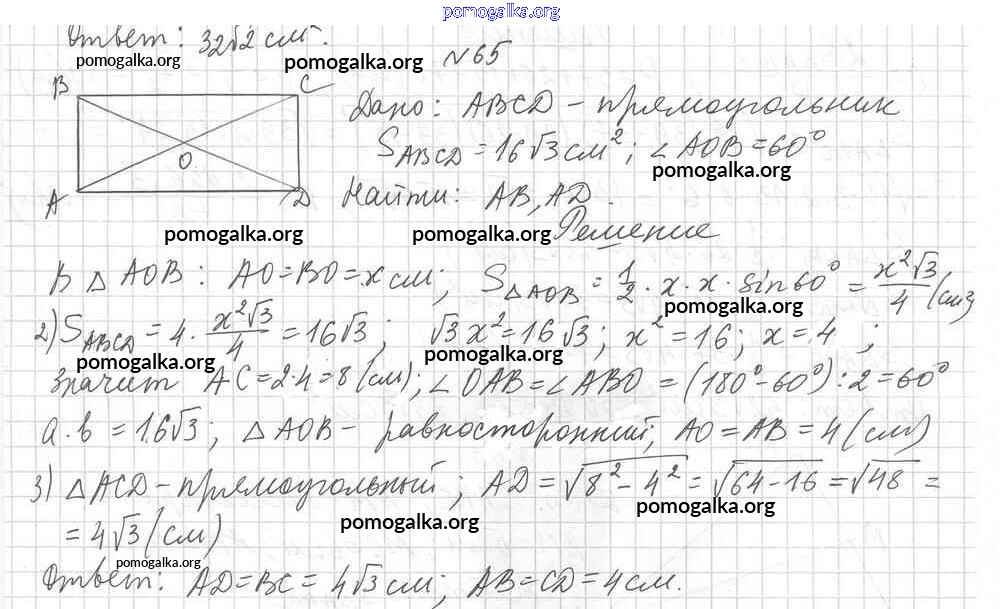 pomogalka.org
Ответ: 32√2 см².
pomogalka.org
pomogalka.org
№65
B C
O
A D
Дано: ABCD – прямоугольник
S_ABCD = 16√3 см²; ∠AOB = 60°
pomogalka.org
Найти: AB, AD.
pomogalka.org
pomogalka.org
Решение
В △AOB: AO = BO = x см; S_△AOB = 1/2 · x · x · sin60° = x²√3/4 (см²)
pomogalka.org
2) S_ABCD = 4 · x²√3/4 = 16√3; √3x² = 16√3; x² = 16; x = 4;
pomogalka.org
pomogalka.org
значит AC = 2·4 = 8 (см); ∠OAB = ∠ABO = (180° – 60°) : 2 = 60°
a·b = 16√3; △AOB – равносторонний; AO = AB = 4 (см)
3) △ACD – прямоугольный; AD = √8² – 4² = √64 – 16 = √48 =
pomogalka.org
pomogalka.org
= 4√3 (см)
pomogalka.org
Ответ: AD = BC = 4√3 см; AB = CD = 4 см.